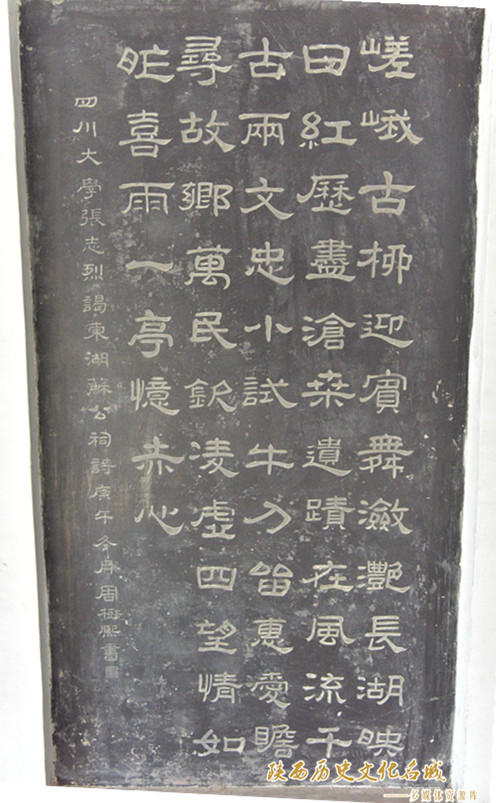 嵯峨古柳迎賓舞瀲灩長湖映
日紅歷盡滄桒遺蹟在風流千
古兩文忠小試牛刀留惠愛瞻
尋故鄉萬民欽凌虛四望情如
昨喜雨一亭憶赤心
四川大學張志烈謁東湖蘇公祠詩庚午冬月周梅熙書
陕西历史文化名城
多媒体资源库